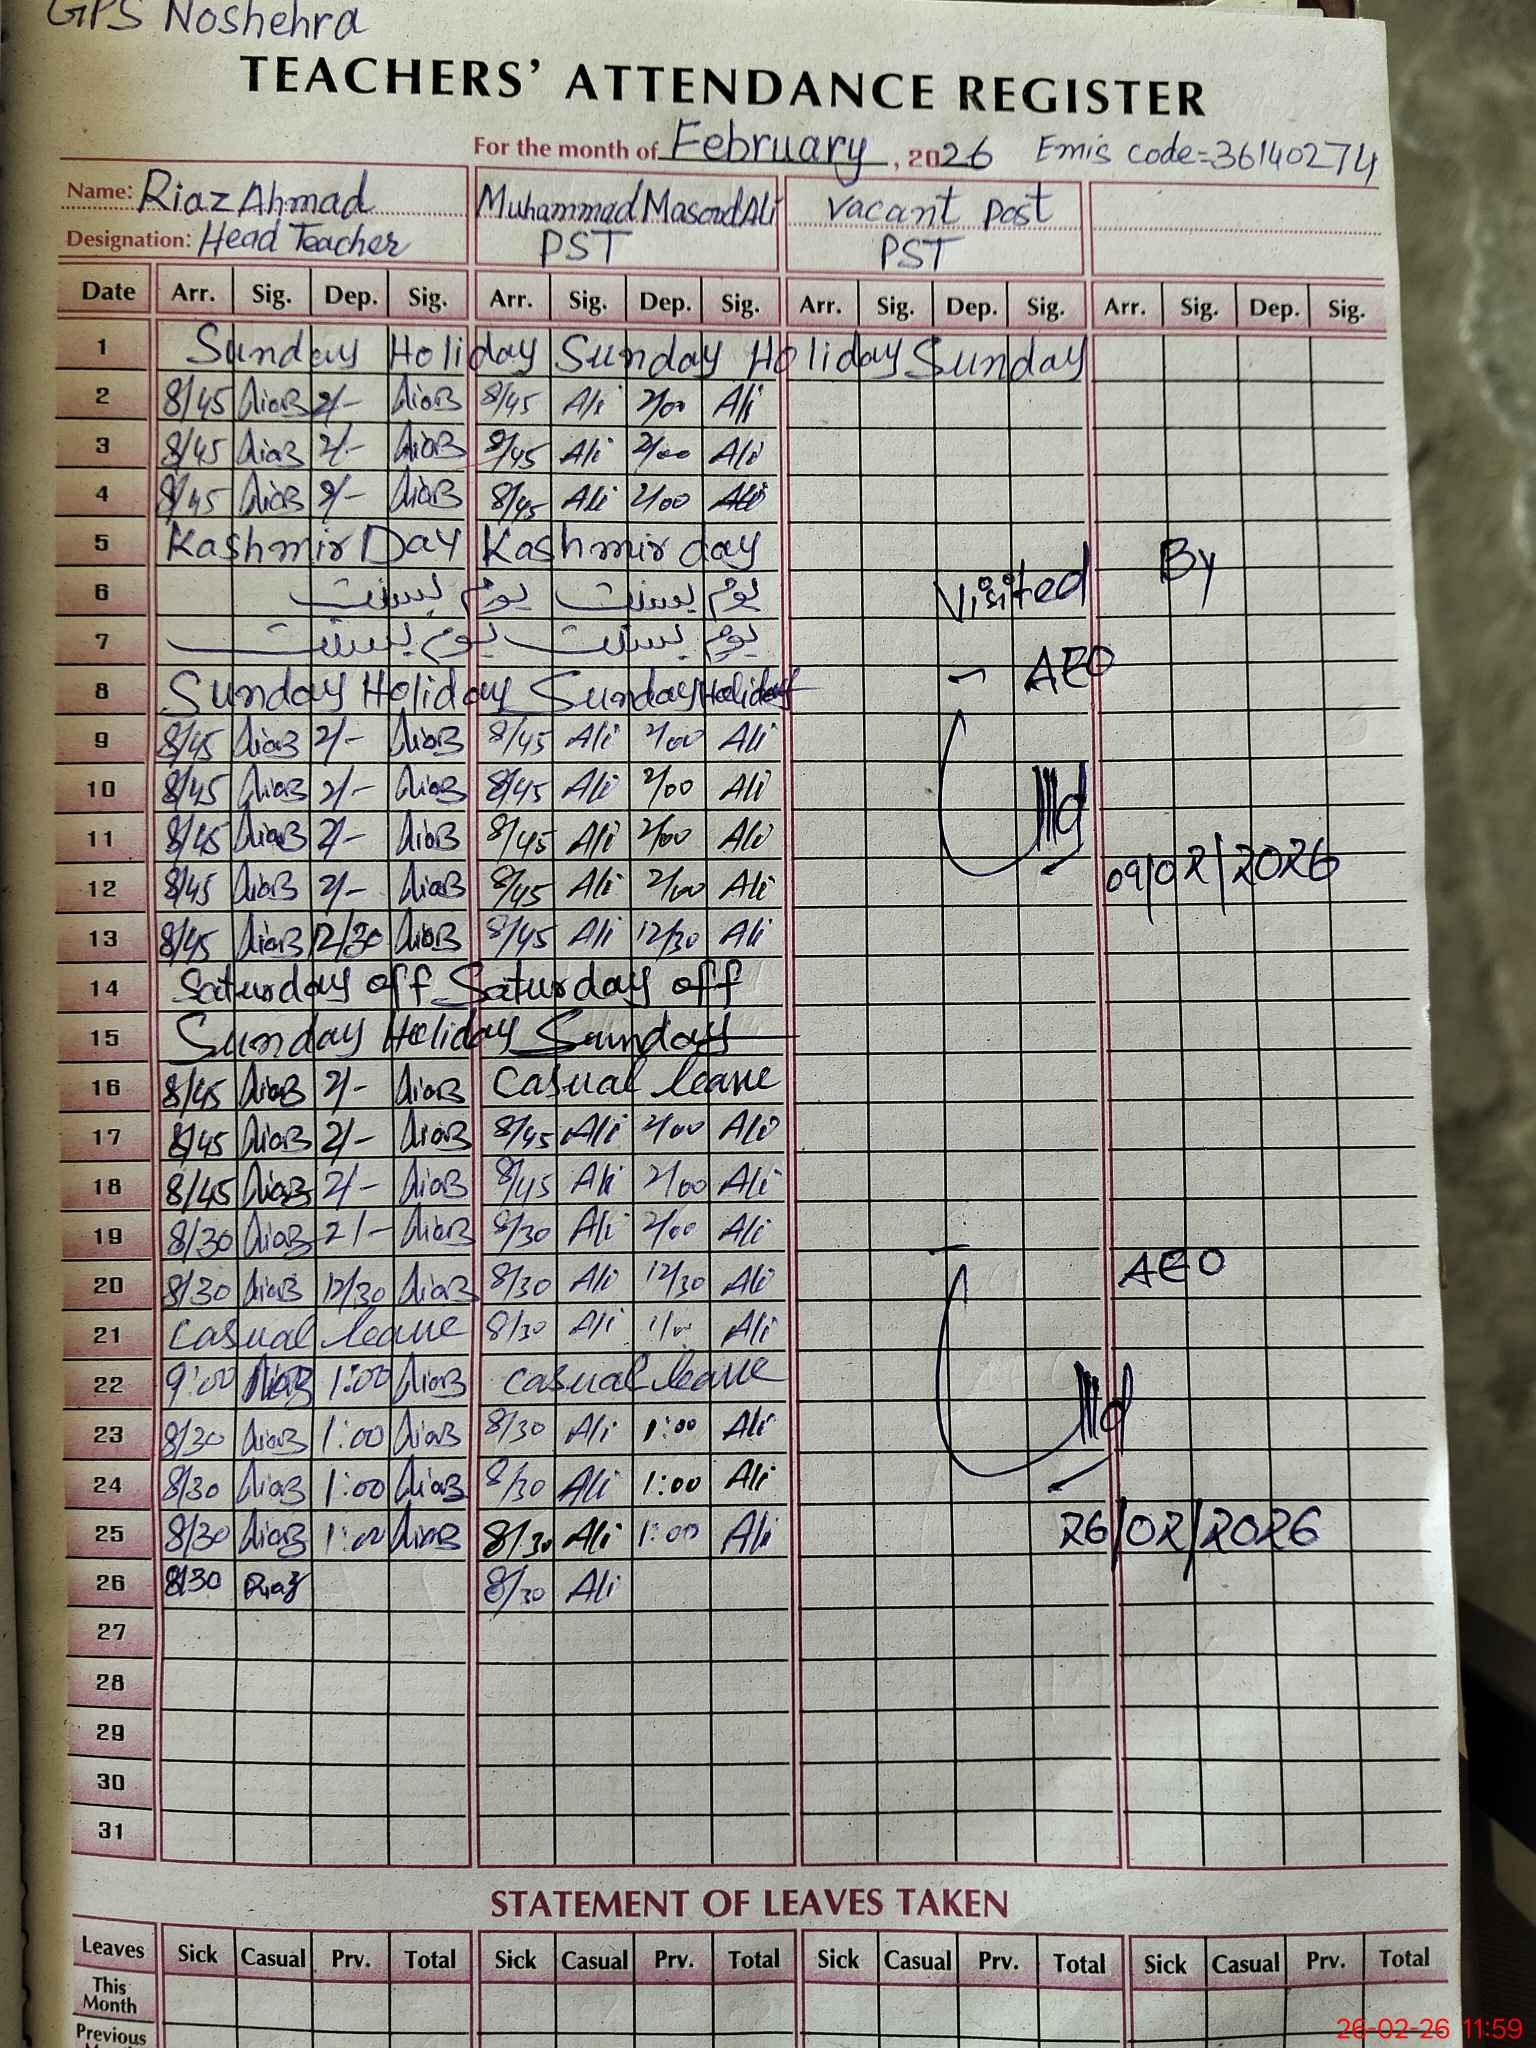 GPS Noshehra
TEACHERS' ATTENDANCE REGISTER
For the month of February, 2026 Emis code=36140274
Name: Riaz Ahmad Muhammad Masood Ali Vacant Post
Designation: Head Teacher PST PST
Date Arr. Sig. Dep. Sig. Arr. Sig. Dep. Sig. Arr. Sig. Dep. Sig. Arr. Sig. Dep. Sig.
1 Sunday Holiday Sunday Holiday Sunday
2 8/45 2/- 8/45 Ali 2/00 Ali
3 8/45 2/- 8/45 Ali 2/00 Ali
4 8/45 2/- 8/45 Ali 2/00 Ali
5 Kashmir Day Kashmir day
6 یوم بسنت یوم بسنت Visited By
7 یوم بسنت یوم بسنت
8 Sunday Holiday Sunday Holiday - AEO
9 8/45 2/- 8/45 Ali 2/00 Ali
10 8/45 2/- 8/45 Ali 2/00 Ali
11 8/45 2/- 8/45 Ali 2/00 Ali
12 8/45 2/- 8/45 Ali 2/00 Ali 09/02/2026
13 8/45 12/30 8/45 Ali 12/30 Ali
14 Saturday off Saturday off
15 Sunday Holiday Sunday
16 8/45 2/- casual leave
17 8/45 2/- 8/45 Ali 2/00 Ali
18 8/45 2/- 8/45 Ali 2/00 Ali
19 8/30 2/- 8/30 Ali 2/00 Ali
20 8/30 12/30 8/30 Ali 12/30 Ali AEO
21 casual leave 8/30 Ali 1/00 Ali
22 9:00 1:00 casual leave
23 8/30 1:00 8/30 Ali 1:00 Ali
24 8/30 1:00 8/30 Ali 1:00 Ali
25 8/30 1:00 8/30 Ali 1:00 Ali 26/02/2026
26 8/30 Riaz 8/30 Ali
27
28
29
30
31
STATEMENT OF LEAVES TAKEN
Leaves Sick Casual Prv. Total Sick Casual Prv. Total Sick Casual Prv. Total Sick Casual Prv. Total
This
Month
Previous
26-02-26 11:59